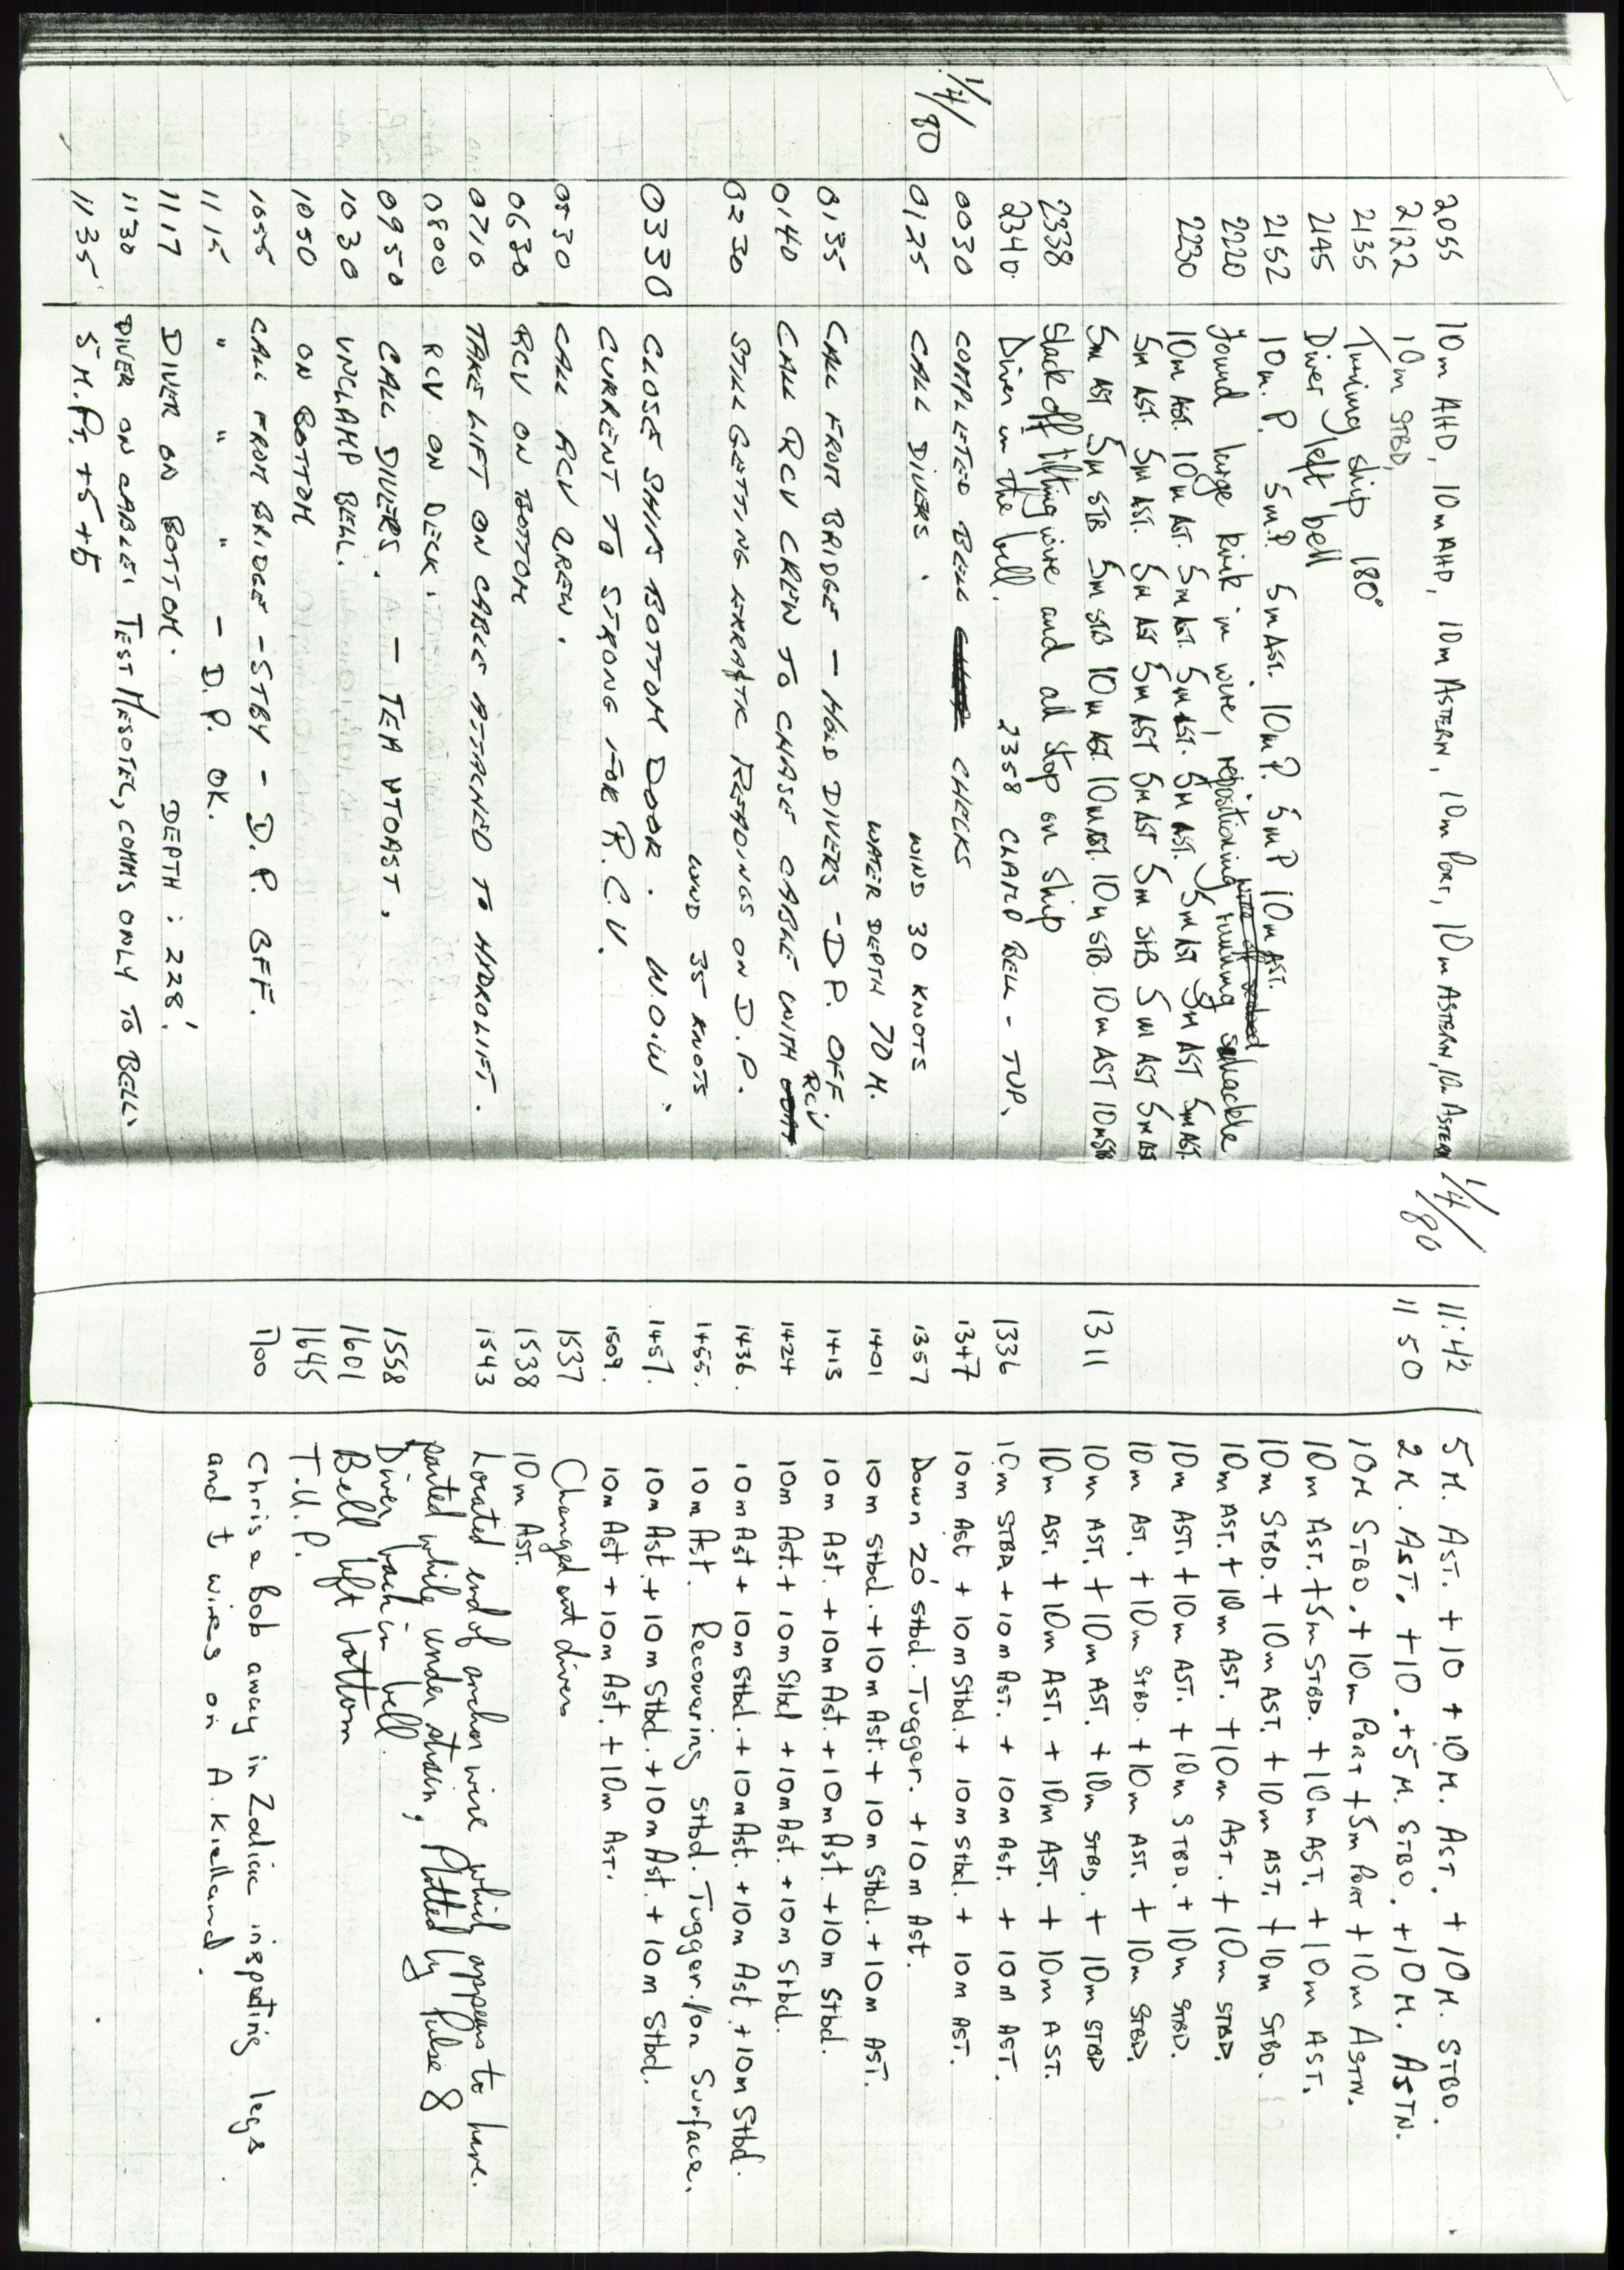 2055 10m AHD, 10m AHD, 10m ASTERN, 10m PORT, 10m ASTERN, 10m ASTERN
2122 10m STBD,
2135 Turning ship 180°
2145 Diver left bell
2152 10m. P. 5m.P. 5m AST. 10m P. 5m P 10m AST.
2220 found large kink in wire, repositioning running shackle
2230 10m AST. 10m AST. 5m AST. 5m AST. 5m AST. 5m AST 5m AST 5m AST.
5m AST. 5m AST. 5m AST 5m AST 5m AST 5m STB 5m AST 5m AST
5m AST 5m STB 5m STB 10m AST. 10m AST. 10m STB. 10m AST 10m STB
2338 Slack off lifting wire and all stop on ship
2340. Diver in the bell. 2358 CLAMP BELL - TUP.
0030 COMPLETED BELL CHECKS
1/4/80 0125 CALL DIVERS. WIND 30 KNOTS
WATER DEPTH 70 M.
0135 CALL FROM BRIDGE - HOLD DIVERS - D P. OFF
0140 CALL RCV CREW TO CHASE CABLE WITH RCV
0230 STILL GETTING ERRATIC READINGS ON D.P.
WIND 35 KNOTS
0330 CLOSE SHIPS BOTTOM DOOR. W.O.W.
CURRENT TO STRONG FOR R.C.V.
0530 CALL RCV CREW.
0630 RCV ON BOTTOM
0710 TAKE LIFT ON CABLE ATTACHED TO HYDROLIFT.
0800 RCV ON DECK.
0950 CALL DIVERS. - TEA & TOAST.
1030 UNCLAMP BELL.
1050 ON BOTTOM
1055 CALL FROM BRIDGE - STBY - D.P. OFF.
1115 " " " - D.P. OK.
1117 DIVER ON BOTTOM. DEPTH: 228'.
1130 DIVER ON CABLE. TEST MESOTEL, COMMS ONLY TO BELL.
1135 5 M. PT. +5 +5
1/4/80 11:42 5 M. AST. + 10 + 10 M. AST. + 10 M. STBD.
1150 2 M. AST. + 10. + 5 M. STBD. + 10 M. ASTN.
10 M STBD. + 10m PORT + 5m PORT + 10m ASTN.
10m AST. + 5m STBD. + 10m AST. + 10m AST.
10m STBD. + 10m AST. + 10m AST. + 10m STBD.
10m AST. + 10m AST. + 10m AST. + 10m STBD.
10m AST. + 10m AST. + 10m STBD. + 10m STBD.
10m AST. + 10m STBD. + 10m AST. + 10m STBD.
1311 10m AST. + 10m AST. + 10m STBD. + 10m STBD
10m AST. + 10m AST. + 10m AST. + 10m AST.
1336 10m STBD + 10m AST. + 10m AST. + 10m AST.
1347 10m AST + 10m Stbd. + 10m Stbd. + 10m AST.
1357 Down 20' stbd. Tugger. + 10m Ast.
1401 10m Stbd. + 10m Ast. + 10m Stbd. + 10m AST.
1413 10m Ast. + 10m Ast. + 10m Ast. + 10m Stbd.
1424 10m Ast. + 10m Stbd + 10m Ast. + 10m Stbd.
1436. 10m Ast + 10m Stbd. + 10m Ast. + 10m Ast + 10m Stbd.
1455. 10m Ast. Recovering Stbd. Tugger./on Surface.
1457. 10m Ast. + 10m Stbd. + 10m Ast. + 10m Stbd.
1509. 10m Ast + 10m Ast. + 10m Ast.
1537 Changed out divers
1538 10m AST.
1543 Located end of anchor wire which appears to have.
parted while under strain, Plotted by Pulse 8
1558 Diver back in bell.
1601 Bell left bottom
1645 T.U.P.
1700 Chris & Bob away in Zodiac inspecting legs
and t wires on A. Kielland.